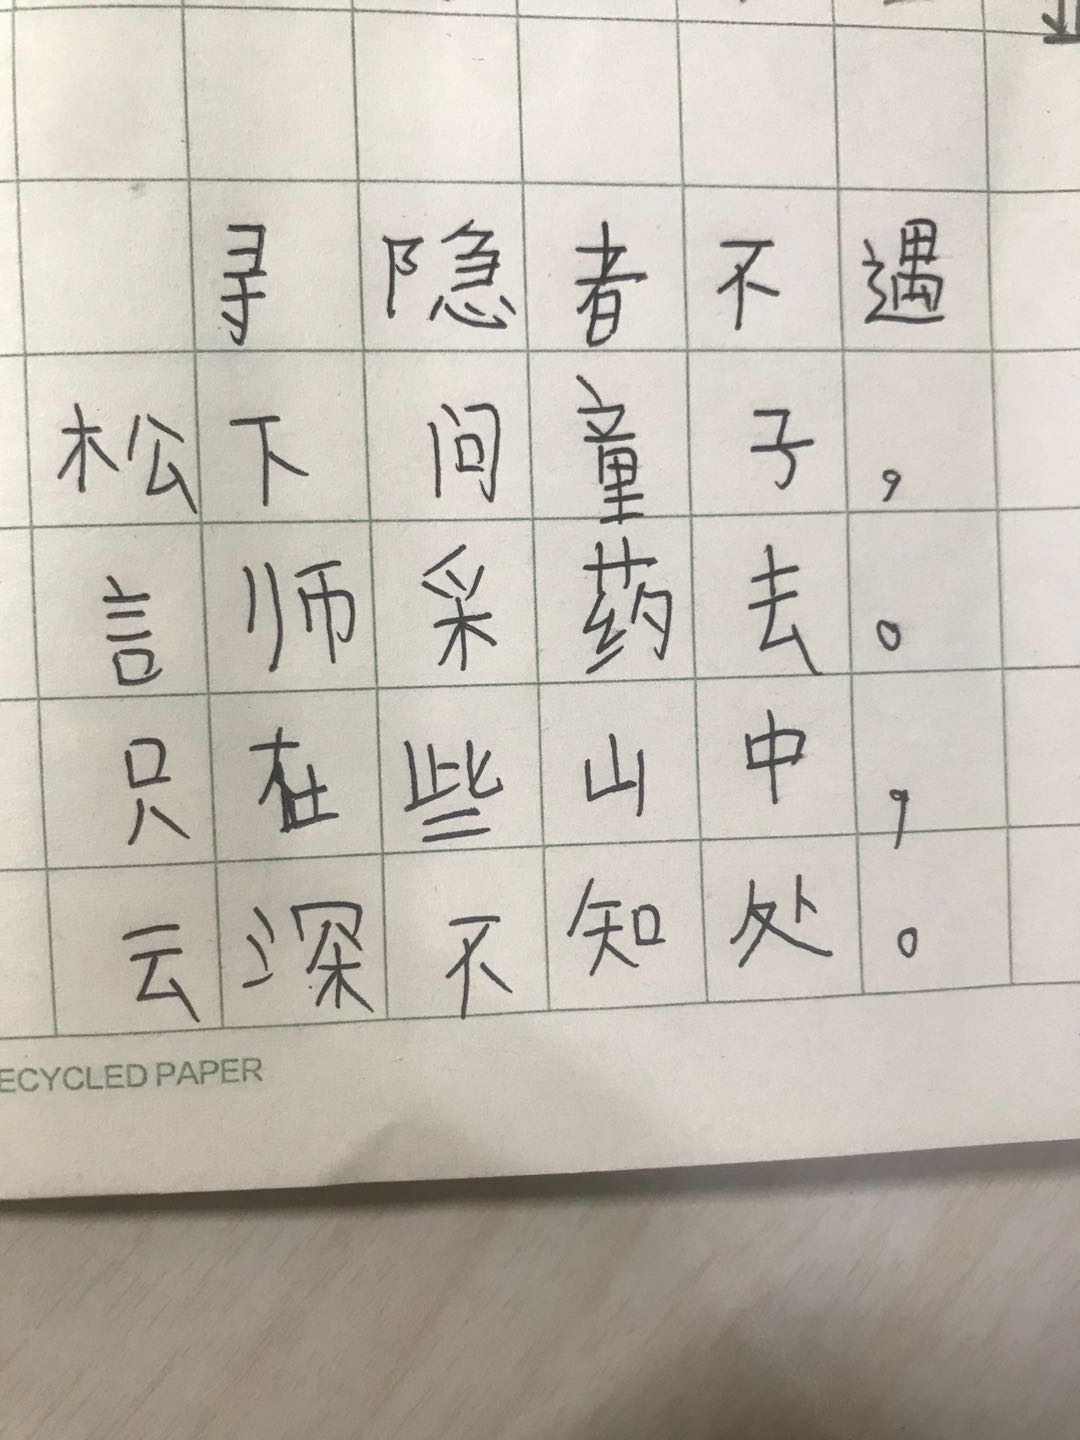 寻隐者不遇
松下问童子，
言师采药去。
只在些山中，
云深不知处。
ECYCLED PAPER